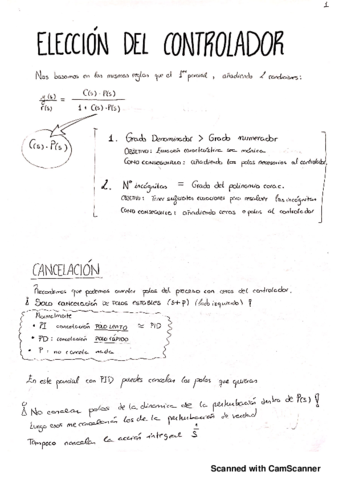 1
ELECCIÓN DEL CONTROLADOR
Nos basamos en las mismas reglas que el 1er parcial, añadiendo 2 condiciones:
y(s) / r(s) = C(s)·P(s) / 1 + C(s)·P(s)
C(s)·P(s)
1. Grado Denominador > Grado numerador
OBJETIVO: Ecuación característica sea mónica.
COMO CONSEGUIRLO: añadiendo los polos necesarios al controlador
2. Nº incógnitas = Grado del polinomio carac.
OBJETIVO: Tener suficientes ecuaciones para resolver las incógnitas
COMO CONSEGUIRLO: añadiendo ceros o polos al controlador
CANCELACIÓN
Recordemos que podemos cancelar polos del proceso con ceros del controlador.
¡ SOLO CANCELACIÓN DE POLOS ESTABLES (s+p) (lado izquierdo) !
Normalmente
• PI cancelación POLO LENTO ≈ PID
• PD: cancelación POLO RÁPIDO
• P: no cancela nada
En este parcial con PID puedes cancelar los polos que quieras
¡ No cancelar polos de la dinámica de la perturbación dentro de P(s) !
Luego esos me cancelarán los de la perturbación de verdad
Tampoco cancela la acción integral 1/S
Scanned with CamScanner